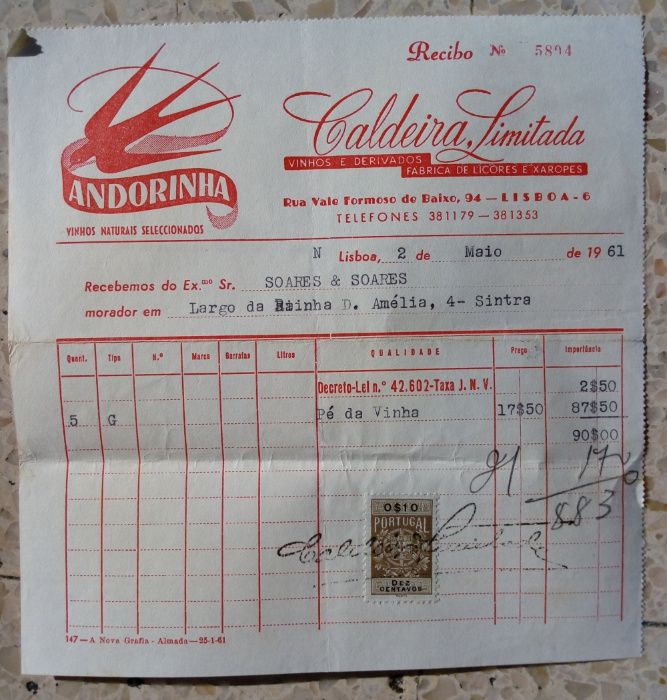 Recibo Nº 5894
ANDORINHA
VINHOS NATURAIS SELECCIONADOS
Caldeira, Limitada
VINHOS E DERIVADOS
FABRICA DE LICORES E XAROPES
Rua Vale Formoso de Baixo, 94 — LISBOA - 6
TELEFONES 381179 — 381353
N Lisboa, 2 de Maio de 1961
Recebemos do Ex.mo Sr. SOARES & SOARES
morador em Largo da Rainha D. Amélia, 4- Sintra
Quant. Tipo N.º Marca Garrafas Litros QUALIDADE Preço Importância
Decreto-Lei n.º 42.602-Taxa J. N. V. 2$50
5 G Pé da Vinha 17$50 87$50
90$00
883
0$10
PORTUGAL
DEZ
CENTAVOS
147 — A Nova Grafia - Almada — 25-1-61